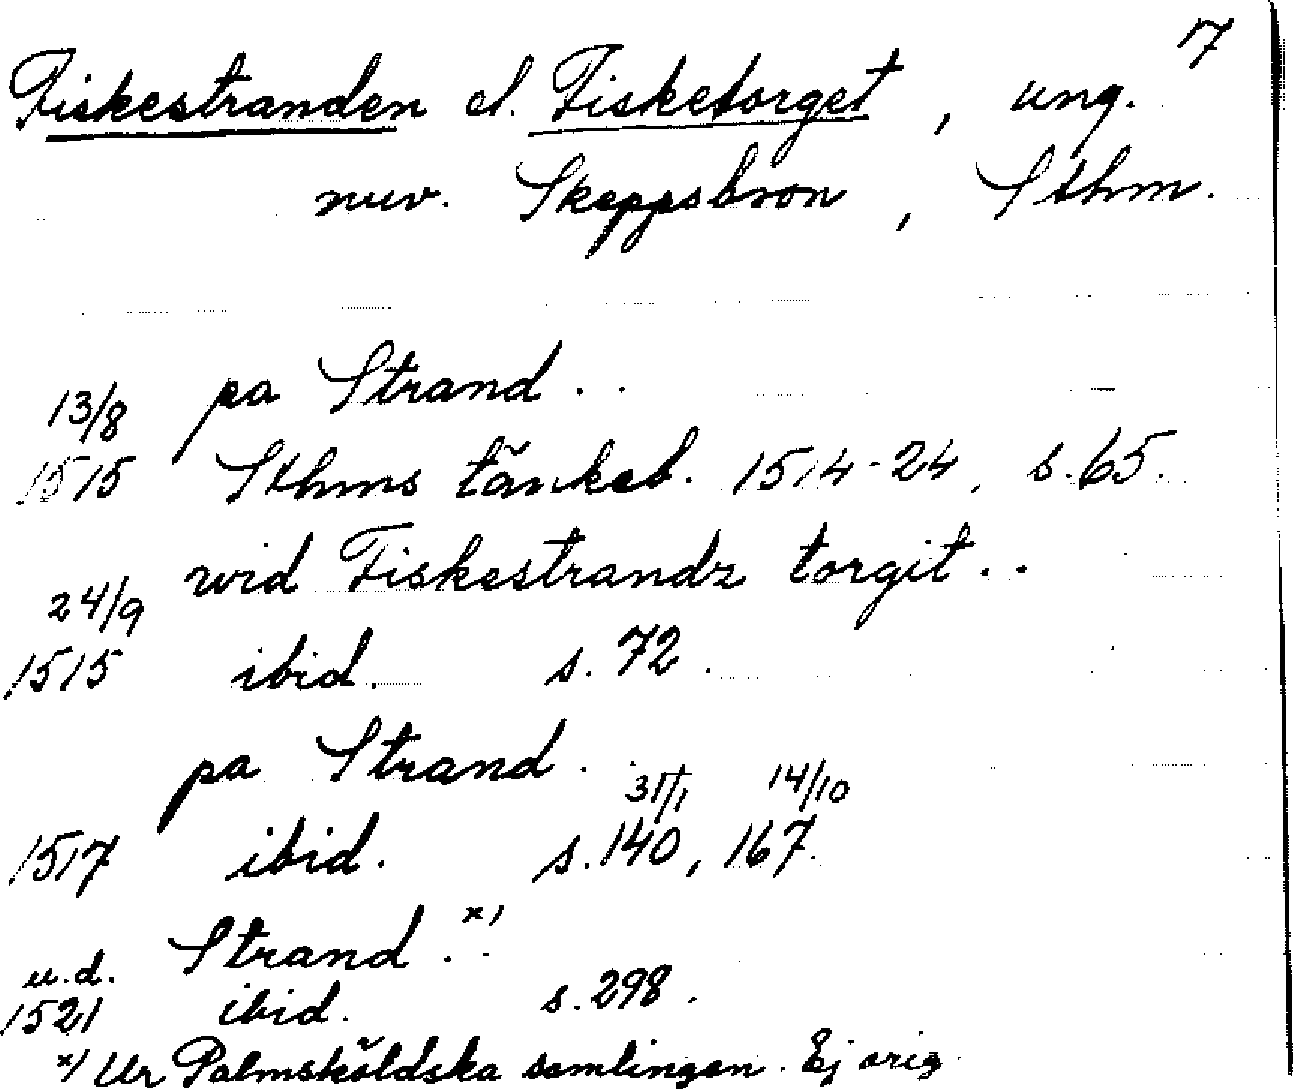 7
Fiskestranden el. Fisketorget, ung.
nuv. Skeppsbron, Sthm.
13/8 pa Strand..
1515 Sthms tänkeb. 1514-24, s. 65.
24/9 wid Fiskestrandz torgit..
1515 ibid. s. 72.
pa Strand..
31/1 14/10
1517 ibid. s. 140, 167.
u.d. Strand.. x)
1521 ibid. s. 298.
x) Ur Palmsköldska samlingen. Ej orig.